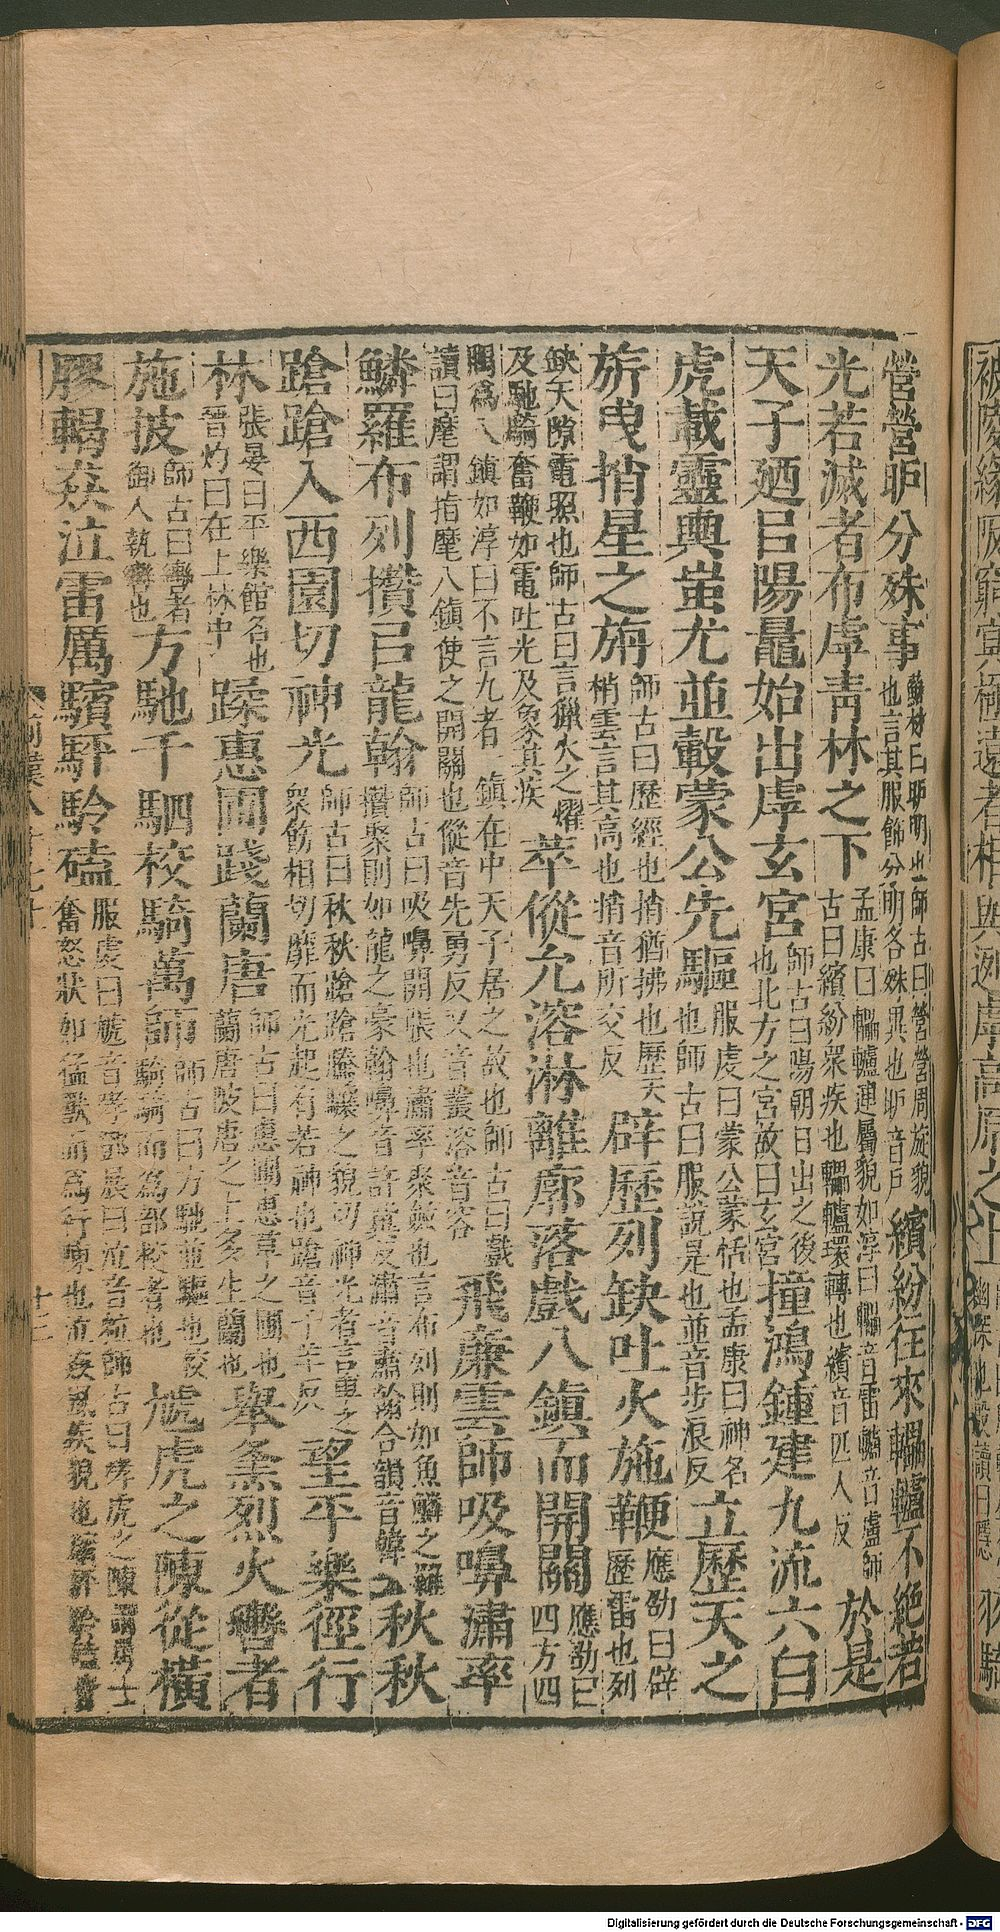 營營昈分殊事蘇林曰昈明也師古曰營營周旋貌也言其服飾分明各殊異也昈音戶繽紛往來轠轤不絕若
光若滅者布虖青林之下孟康曰轠轤連屬貌如淳曰轠音雷轤音盧師古曰繽紛衆疾也轠轤環轉也繽音匹人反於是
天子廼㠯陽鼂始出虖玄宮師古曰陽朝日出之後也北方之宮故曰玄宮撞鴻鍾建九流六白
虎載靈輿蚩尤並轂蒙公先驅服虔曰蒙公蒙恬也孟康曰神名也師古曰服說是也並音步浪反立歷天之
旂曳捎星之旃師古曰歷經也捎猶拂也歷天捎雲言其高也捎音所交反辟歷列缺吐火施鞭應劭曰辟歷雷也列
缺天隙電照也師古曰言獵火之燿及馳騎奮鞭如電吐光及象其疾萃傱允溶淋離廓落戲八鎮而開關應劭曰四方四
隅爲八鎮如淳曰不言九者一鎮在中天子居之故也師古曰戲讀曰麾謂指麾八鎮使之開關也傱音先勇反又音叢溶音容飛廉雲師吸嚊潚率
鱗羅布列攢㠯龍翰師古曰吸嚊開張也潚率聚斂也言布列則如魚鱗之羅攢聚則如龍之豪翰嚊音許冀反潚音肅翰合韻音韓秋秋
蹌蹌入西園切神光師古曰秋秋蹌蹌騰驤之貌切神光者言車之衆飾相切靡而光起有若神也蹌音千羊反望平樂徑行
林張晏曰平樂館名也晉灼曰在上林中蹂惠圃踐蘭唐師古曰惠圃惠草之圃也蘭唐陂唐之上多生蘭也舉㷭烈火轡者
施披師古曰轡者御人執轡也方馳千駟校騎萬師師古曰方馳並驅也校騎騎而爲部校者也虓虎之陳從橫
膠轕猋泣雷厲驞駍駖磕服虔曰虓音哮鄧展曰泣音粒師古曰哮虎之陳謂勇士奮怒狀如猛獸而爲行陳也泣猋風疾貌也
十三
Digitalisierung gefördert durch die Deutsche Forschungsgemeinschaft - DFG